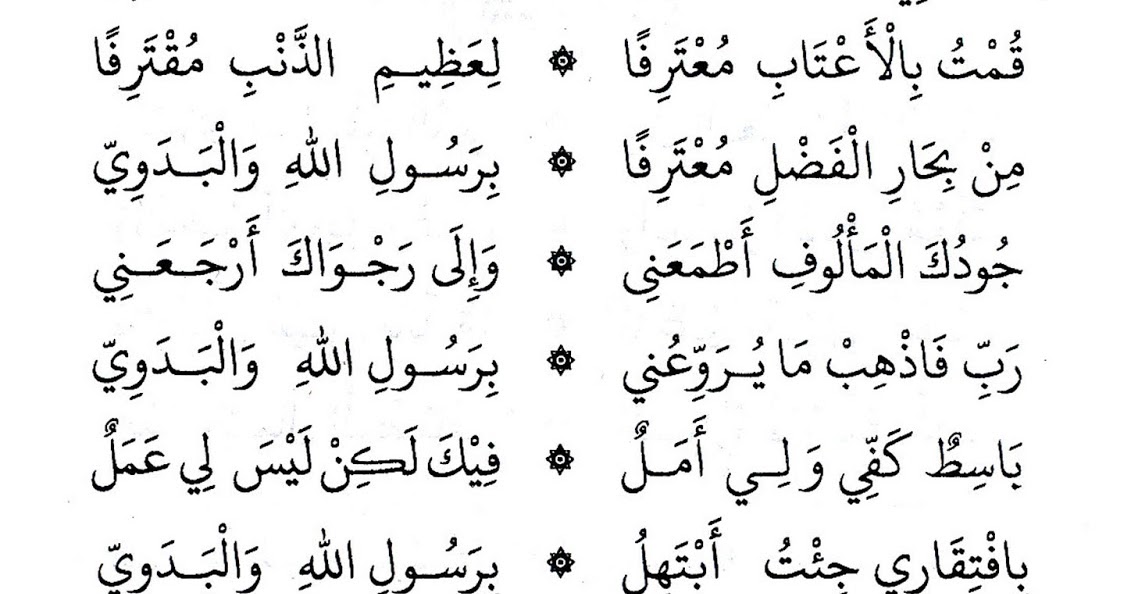 قُمْتُ بِالْأَعْتَابِ مُعْتَرِفًا ۞ لِعَظِيـمِ الذَّنْبِ مُقْتَرِفًا
مِنْ بِحَارِ الْفَضْلِ مُعْتَرِفًا ۞ بِرَسُـولِ اللهِ وَالْبَـدَوِيّ
جُودُكَ الْمَأْلُوفِ أَطْمَعَنِى ۞ وَإِلَى رَجْـوَاكَ أَرْجَـعَـنِي
رَبِّ فَاذْهِبْ مَا يُـرَوِّعُنِي ۞ بِرَسُـولِ اللهِ وَالْبَـدَوِيّ
بَاسِطٌ كَفِّي وَ لِـي أَمَـلٌ ۞ فِيْكَ لَكِنْ لَيْسَ لِي عَمَلٌ
بِافْتِقَارِي جِئْتُ أَبْتَهِلُ ۞ بِرَسُـولِ اللهِ وَالْبَـدَوِيّ